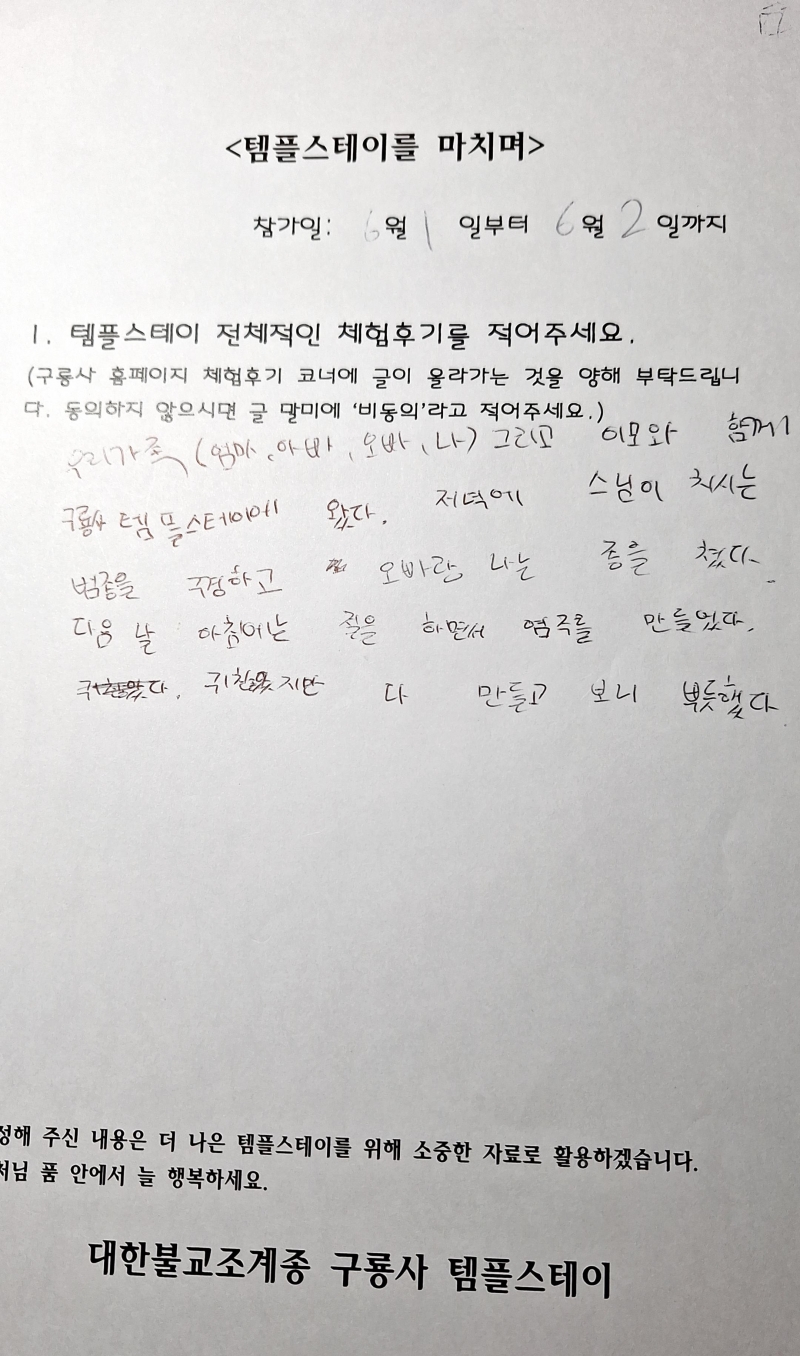 <템플스테이를 마치며>
참가일: 6월 1 일부터 6월 2일까지
1. 템플스테이 전체적인 체험후기를 적어주세요.
(구룡사 홈페이지 체험후기 코너에 글이 올라가는 것을 양해 부탁드립니
다. 동의하지 않으시면 글 말미에 '비동의'라고 적어주세요.)
우리가족 (엄마, 아빠, 오빠, 나) 그리고 이모와 함께
구룡사 템플스테이에 왔다. 저녁에 스님이 치시는
범종을 구경하고 오빠랑 나는 종을 쳤다.
다음 날 아침에는 절을 하면서 염주를 만들었다.
귀찮았지만 다 만들고 보니 뿌듯했다
정해 주신 내용은 더 나은 템플스테이를 위해 소중한 자료로 활용하겠습니다.
처님 품 안에서 늘 행복하세요.
대한불교조계종 구룡사 템플스테이